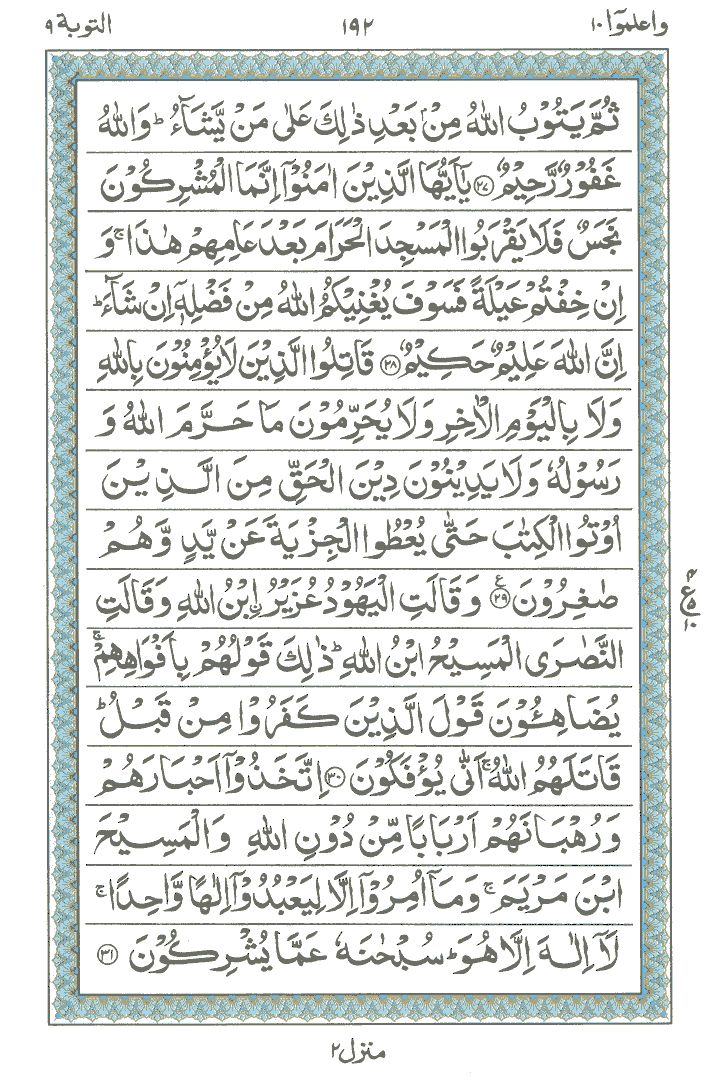 واعلموٓا ١٠ ١٩٢ التوبة ٩
ثُمَّ يَتُوْبُ اللّٰهُ مِنْۢ بَعْدِ ذٰلِكَ عَلٰى مَنْ يَّشَآءُ ؕ وَاللّٰهُ
غَفُوْرٌ رَّحِيْمٌ ﴿۲۷﴾ يٰۤاَيُّهَا الَّذِيْنَ اٰمَنُوْۤا اِنَّمَا الْمُشْرِكُوْنَ
نَجَسٌ فَلَا يَقْرَبُوا الْمَسْجِدَ الْحَرَامَ بَعْدَ عَامِهِمْ هٰذَا ۚ وَ
اِنْ خِفْتُمْ عَيْلَةً فَسَوْفَ يُغْنِيْكُمُ اللّٰهُ مِنْ فَضْلِهٖۤ اِنْ شَآءَ ؕ
اِنَّ اللّٰهَ عَلِيْمٌ حَكِيْمٌ ﴿۲۸﴾ قَاتِلُوا الَّذِيْنَ لَا يُؤْمِنُوْنَ بِاللّٰهِ
وَلَا بِالْيَوْمِ الْاٰخِرِ وَلَا يُحَرِّمُوْنَ مَا حَرَّمَ اللّٰهُ وَ
رَسُوْلُهٗ وَلَا يَدِيْنُوْنَ دِيْنَ الْحَقِّ مِنَ الَّذِيْنَ
اُوْتُوا الْكِتٰبَ حَتّٰى يُعْطُوا الْجِزْيَةَ عَنْ يَّدٍ وَّهُمْ
صٰغِرُوْنَ ﴿۲۹﴾ ع وَقَالَتِ الْيَهُوْدُ عُزَيْرُ ۨابْنُ اللّٰهِ وَقَالَتِ
النَّصٰرَى الْمَسِيْحُ ابْنُ اللّٰهِ ؕ ذٰلِكَ قَوْلُهُمْ بِاَفْوَاهِهِمْ ۚ
يُضَاهِـُٔوْنَ قَوْلَ الَّذِيْنَ كَفَرُوْا مِنْ قَبْلُ ؕ
قَاتَلَهُمُ اللّٰهُ ۚ اَنّٰى يُؤْفَكُوْنَ ﴿۳۰﴾ اِتَّخَذُوْۤا اَحْبَارَهُمْ
وَرُهْبَانَهُمْ اَرْبَابًا مِّنْ دُوْنِ اللّٰهِ وَالْمَسِيْحَ
ابْنَ مَرْيَمَ ۚ وَمَاۤ اُمِرُوْۤا اِلَّا لِيَعْبُدُوْۤا اِلٰهًا وَّاحِدًا ۚ
لَاۤ اِلٰهَ اِلَّا هُوَ ؕ سُبْحٰنَهٗ عَمَّا يُشْرِكُوْنَ ﴿۳۱﴾
منزل ٢